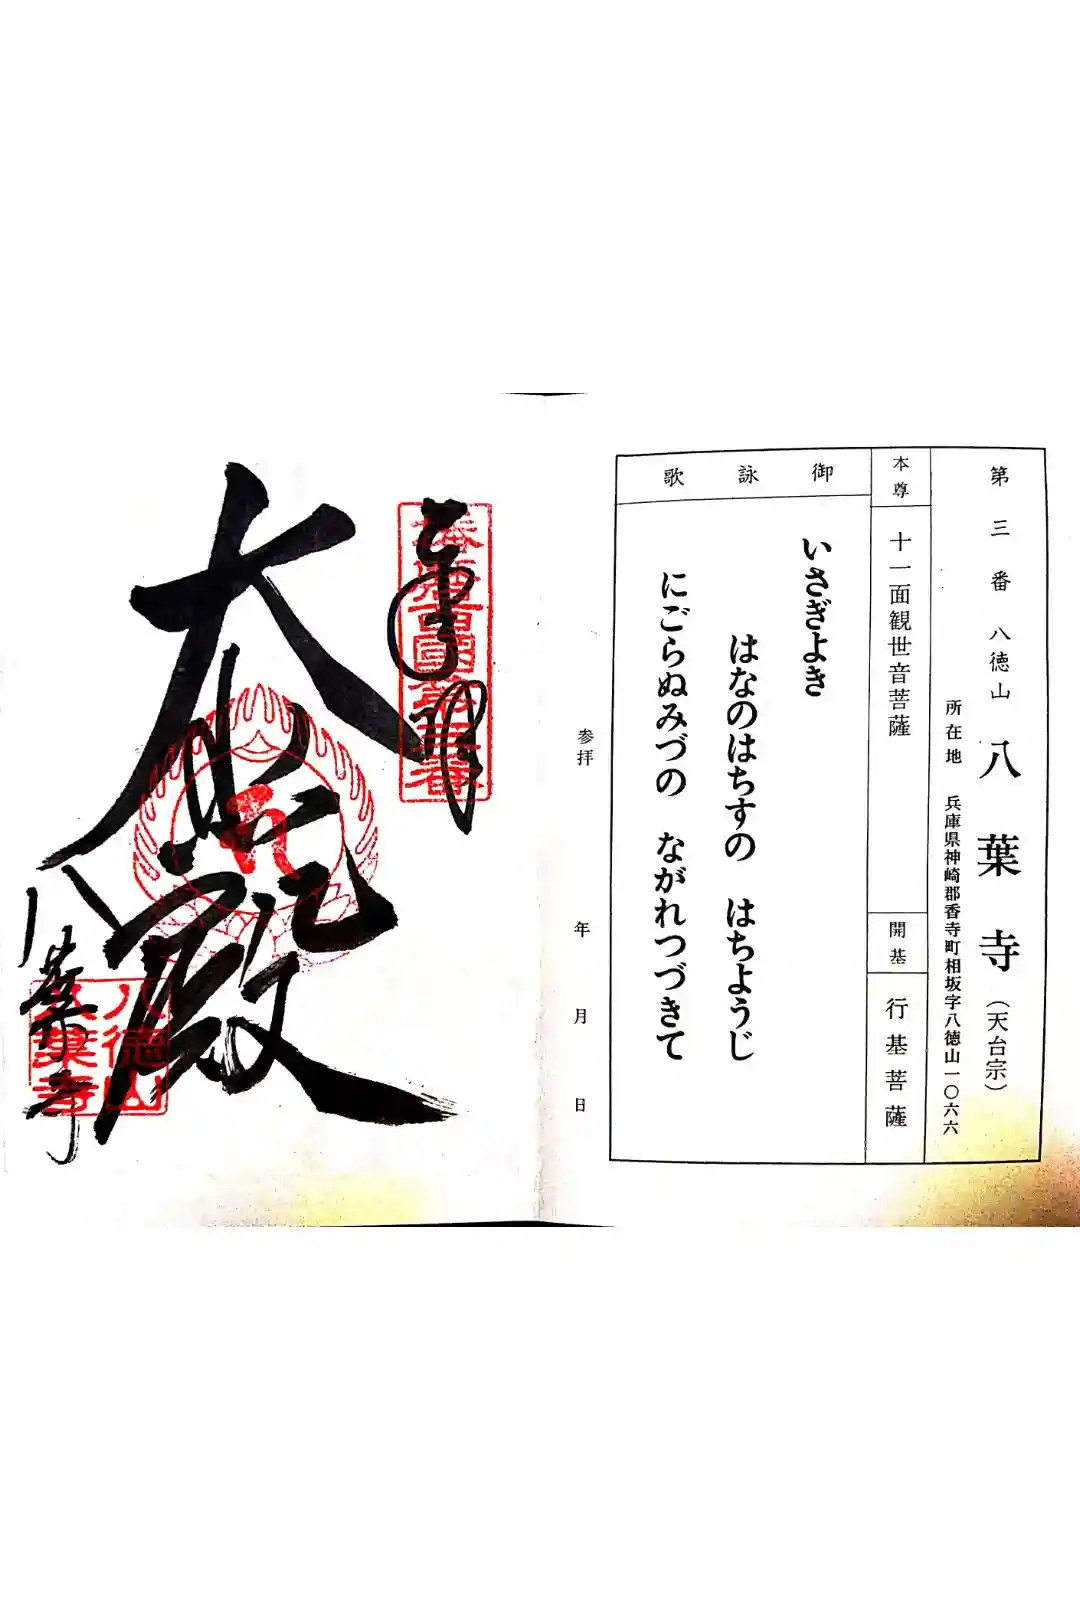 第三番 八徳山 八葉寺(天台宗)
所在地 兵庫県神崎郡香寺町相坂字八徳山一〇六六
本尊
十一面観世音菩薩
開基
行基菩薩
御詠歌
いさぎよき
はなのはちすの はちようじ
にごらぬみづの ながれつづきて
参拝 年 月 日
奉拝
播磨西國第三番
大悲殿
八葉寺
八徳山
八葉寺